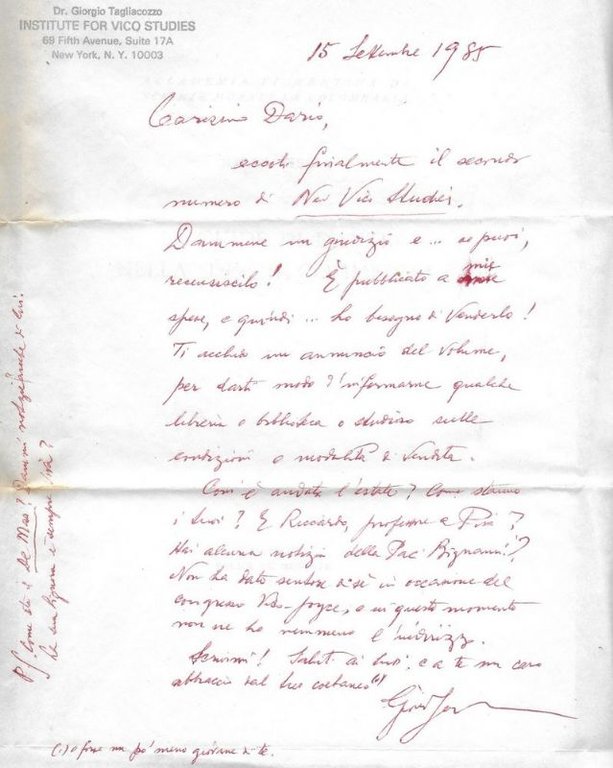 Dr. Giorgio Tagliacozzo
INSTITUTE FOR VICO STUDIES
69 Fifth Avenue, Suite 17A
New York, N. Y. 10003
15 Settembre 1985
Carissimo Dario,
eccoti finalmente il secondo
numero di New Vico Studies.
Dammene un giudizio e ... se puoi,
recensiscilo! È pubblicato a mie
spese, e quindi ... ho bisogno di venderlo!
Ti accludo un annuncio del volume,
per darti modo d'informarne qualche
libreria o biblioteca o studioso sulle
condizioni e modalità di vendita.
Com'è andata l'estate? Come stanno
i tuoi? E Riccardo, professore a Pisa?
Hai alcuna notizia della Bignami?
Non ha dato sentore di sè in occasione del
congresso Vico-Joyce, e in questo momento
non ne ho nemmeno l'indirizzo.
Scrivimi! Saluti ai tuoi, e a te un caro
abbraccio dal tuo coetaneo(1)
Giorgio
(1) o forse un pò meno giovane di te.
PS. Come sta il De Mas? Dammi notizie anche di lui.
La sua Signora è sempre